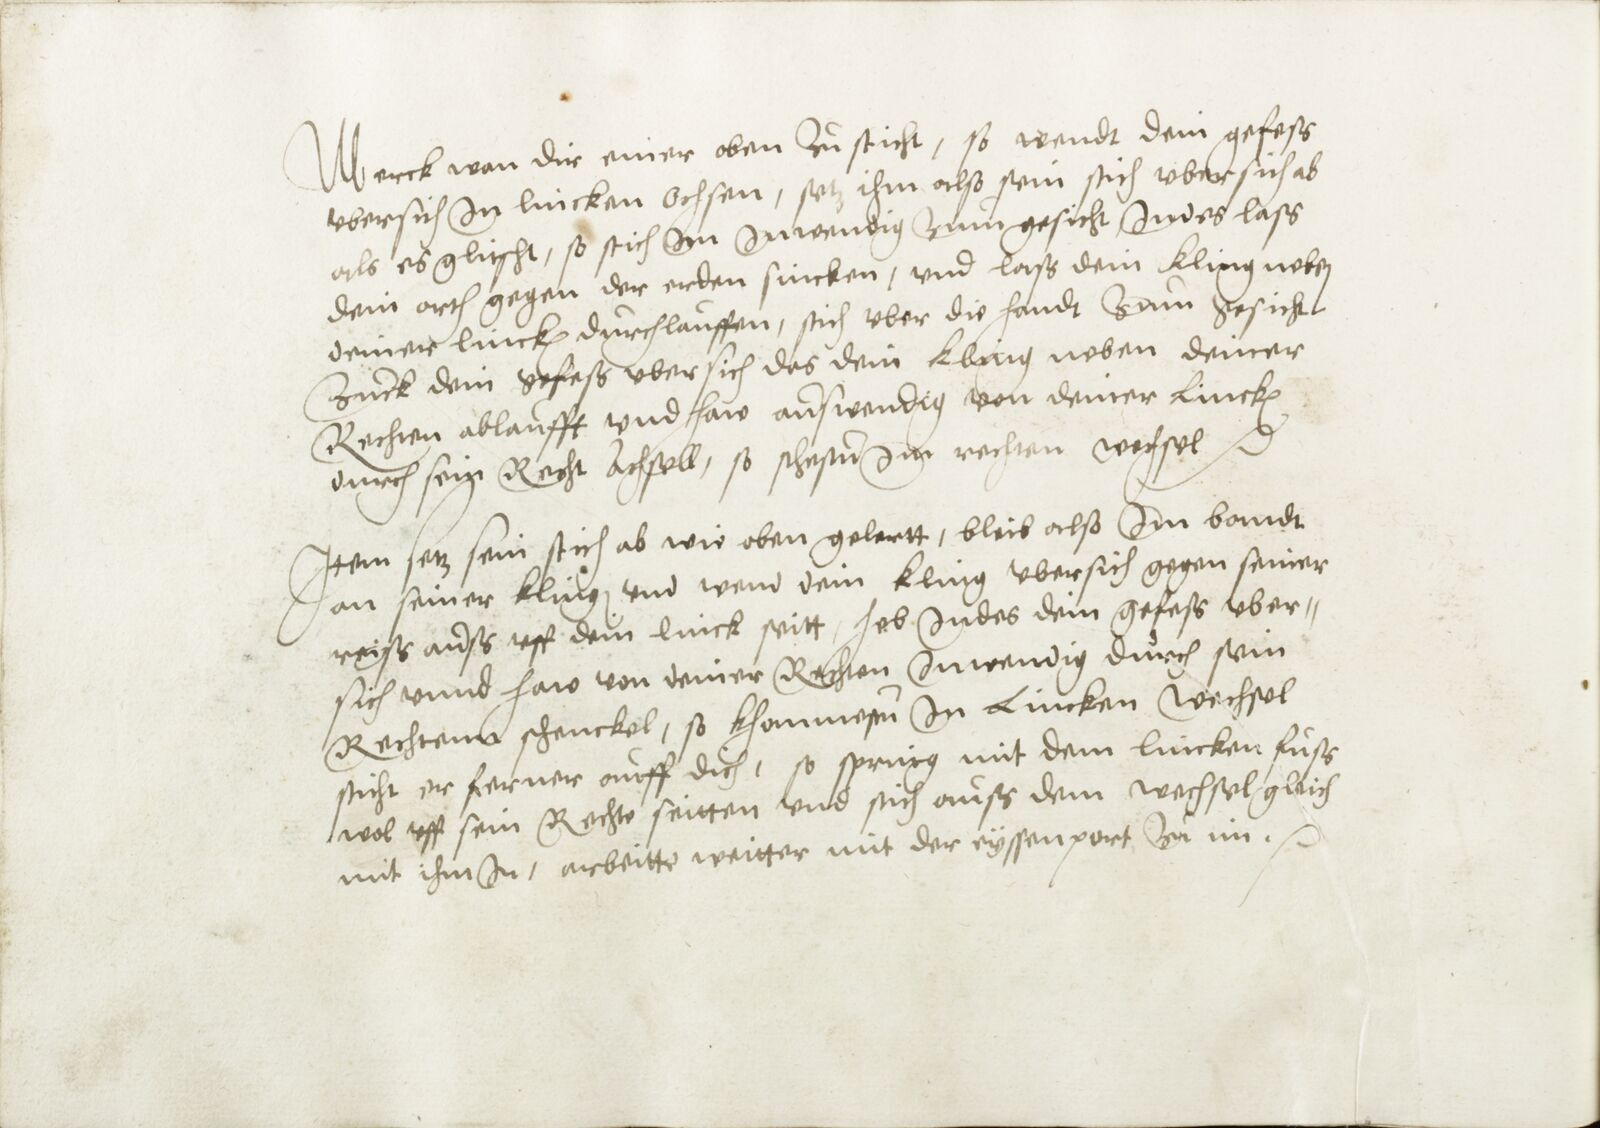 Merck wan dir einer oben Zu sticht, so wendt dein gefess
ubersich In lincken Ochsen, setz ihm also sein stich ubersich ab
als es glitscht, so stich Im Inwendig Zum gesicht Indes lass
dein orth gegen der erden sincken, und lass dein kling neben
deiner linck durchlauffen, stich uber die handt Zum gesicht
Zuck dein gefess ubersich das dein kling neben deiner
Rechten ablaufft und haw auswendig von deiner Linck
durch sein Recht Achsell, so Im rechten wechsel
Item setz sein stich ab wie oben gelertt, bleib also Im bandt
an seiner kling, und wend dein kling ubersich gegen seiner
reiss auss uff dein linck seitt, heb Indes dein gefess uber=
sich unnd haw von deiner Rechten Inwendig durch sein
Rechtenn schenckel, so In Lincken Wechsel
sticht er ferner auff dich, so spring mit dem lincken fuss
wol uff sein Rechte seitten und stich auss dem wechsel gleich
mit ihm In, arbeitte weitter mit der eyssenport Zu im.